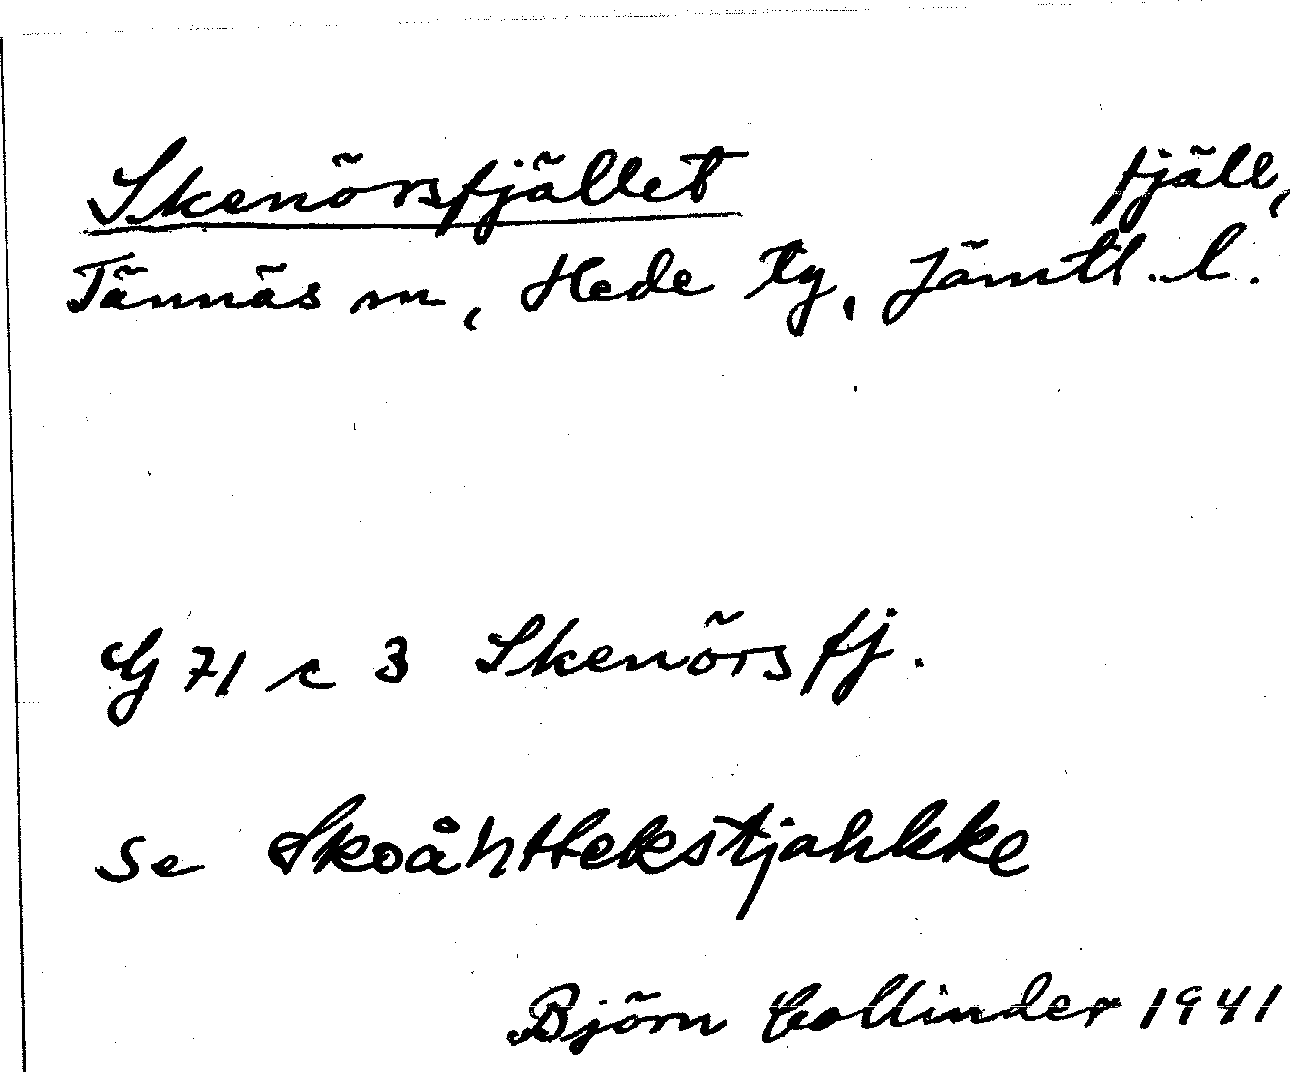 Skenörsfjället fjäll,
Tännäs sn, Hede tg, Jämtl. l.
G 71 c 3 Skenörsfj.
se Skoåhttekstjahkke
Björn Collinder 1941